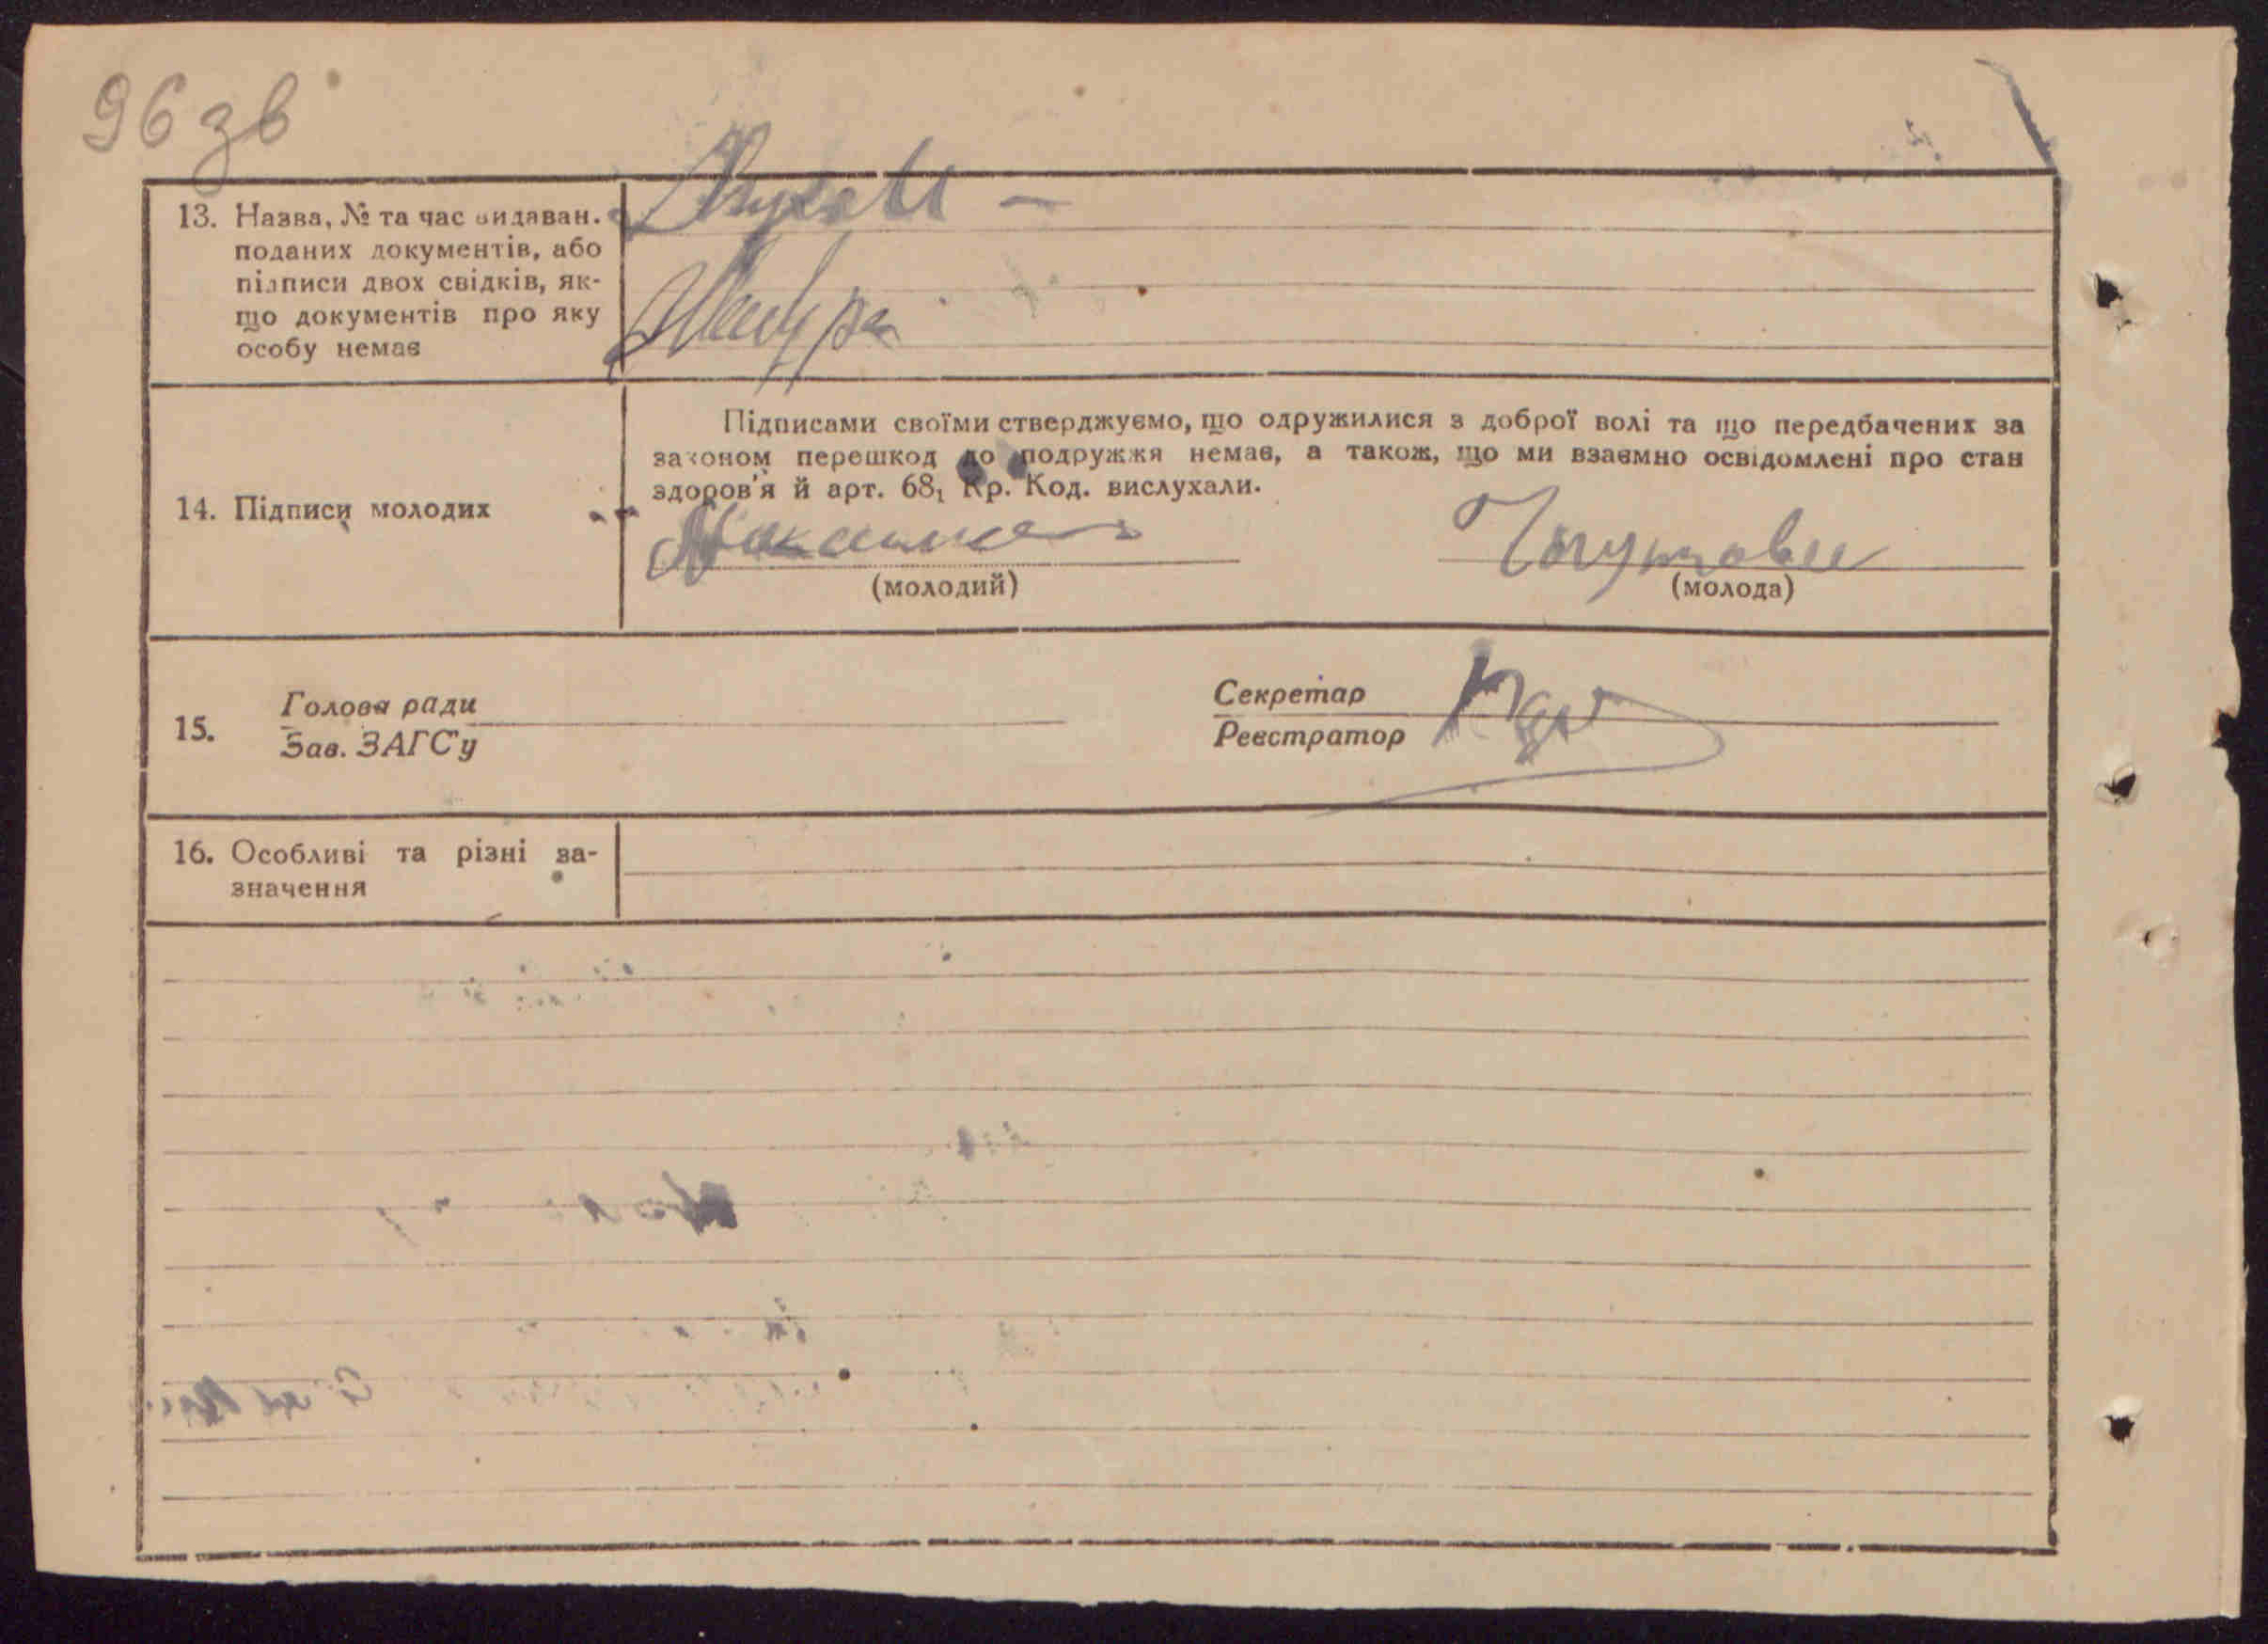 96 зв
13. Назва, № та час видаван.
поданих документів, або
підписи двох свідків, як-
що документів про яку
особу немає
Підписами своїми стверджуємо, що одружилися з доброї волі та що передбачених за
законом перешкод до подружжя немає, а також, що ми взаємно освідомлені про стан
здоров'я й арт. 68₁ Кр. Код. вислухали.
14. Підписи молодих
(молодий) (молода)
15. Голова ради Секретар
Зав. ЗАГС'у Реєстратор
16. Особливі та різні за-
значення